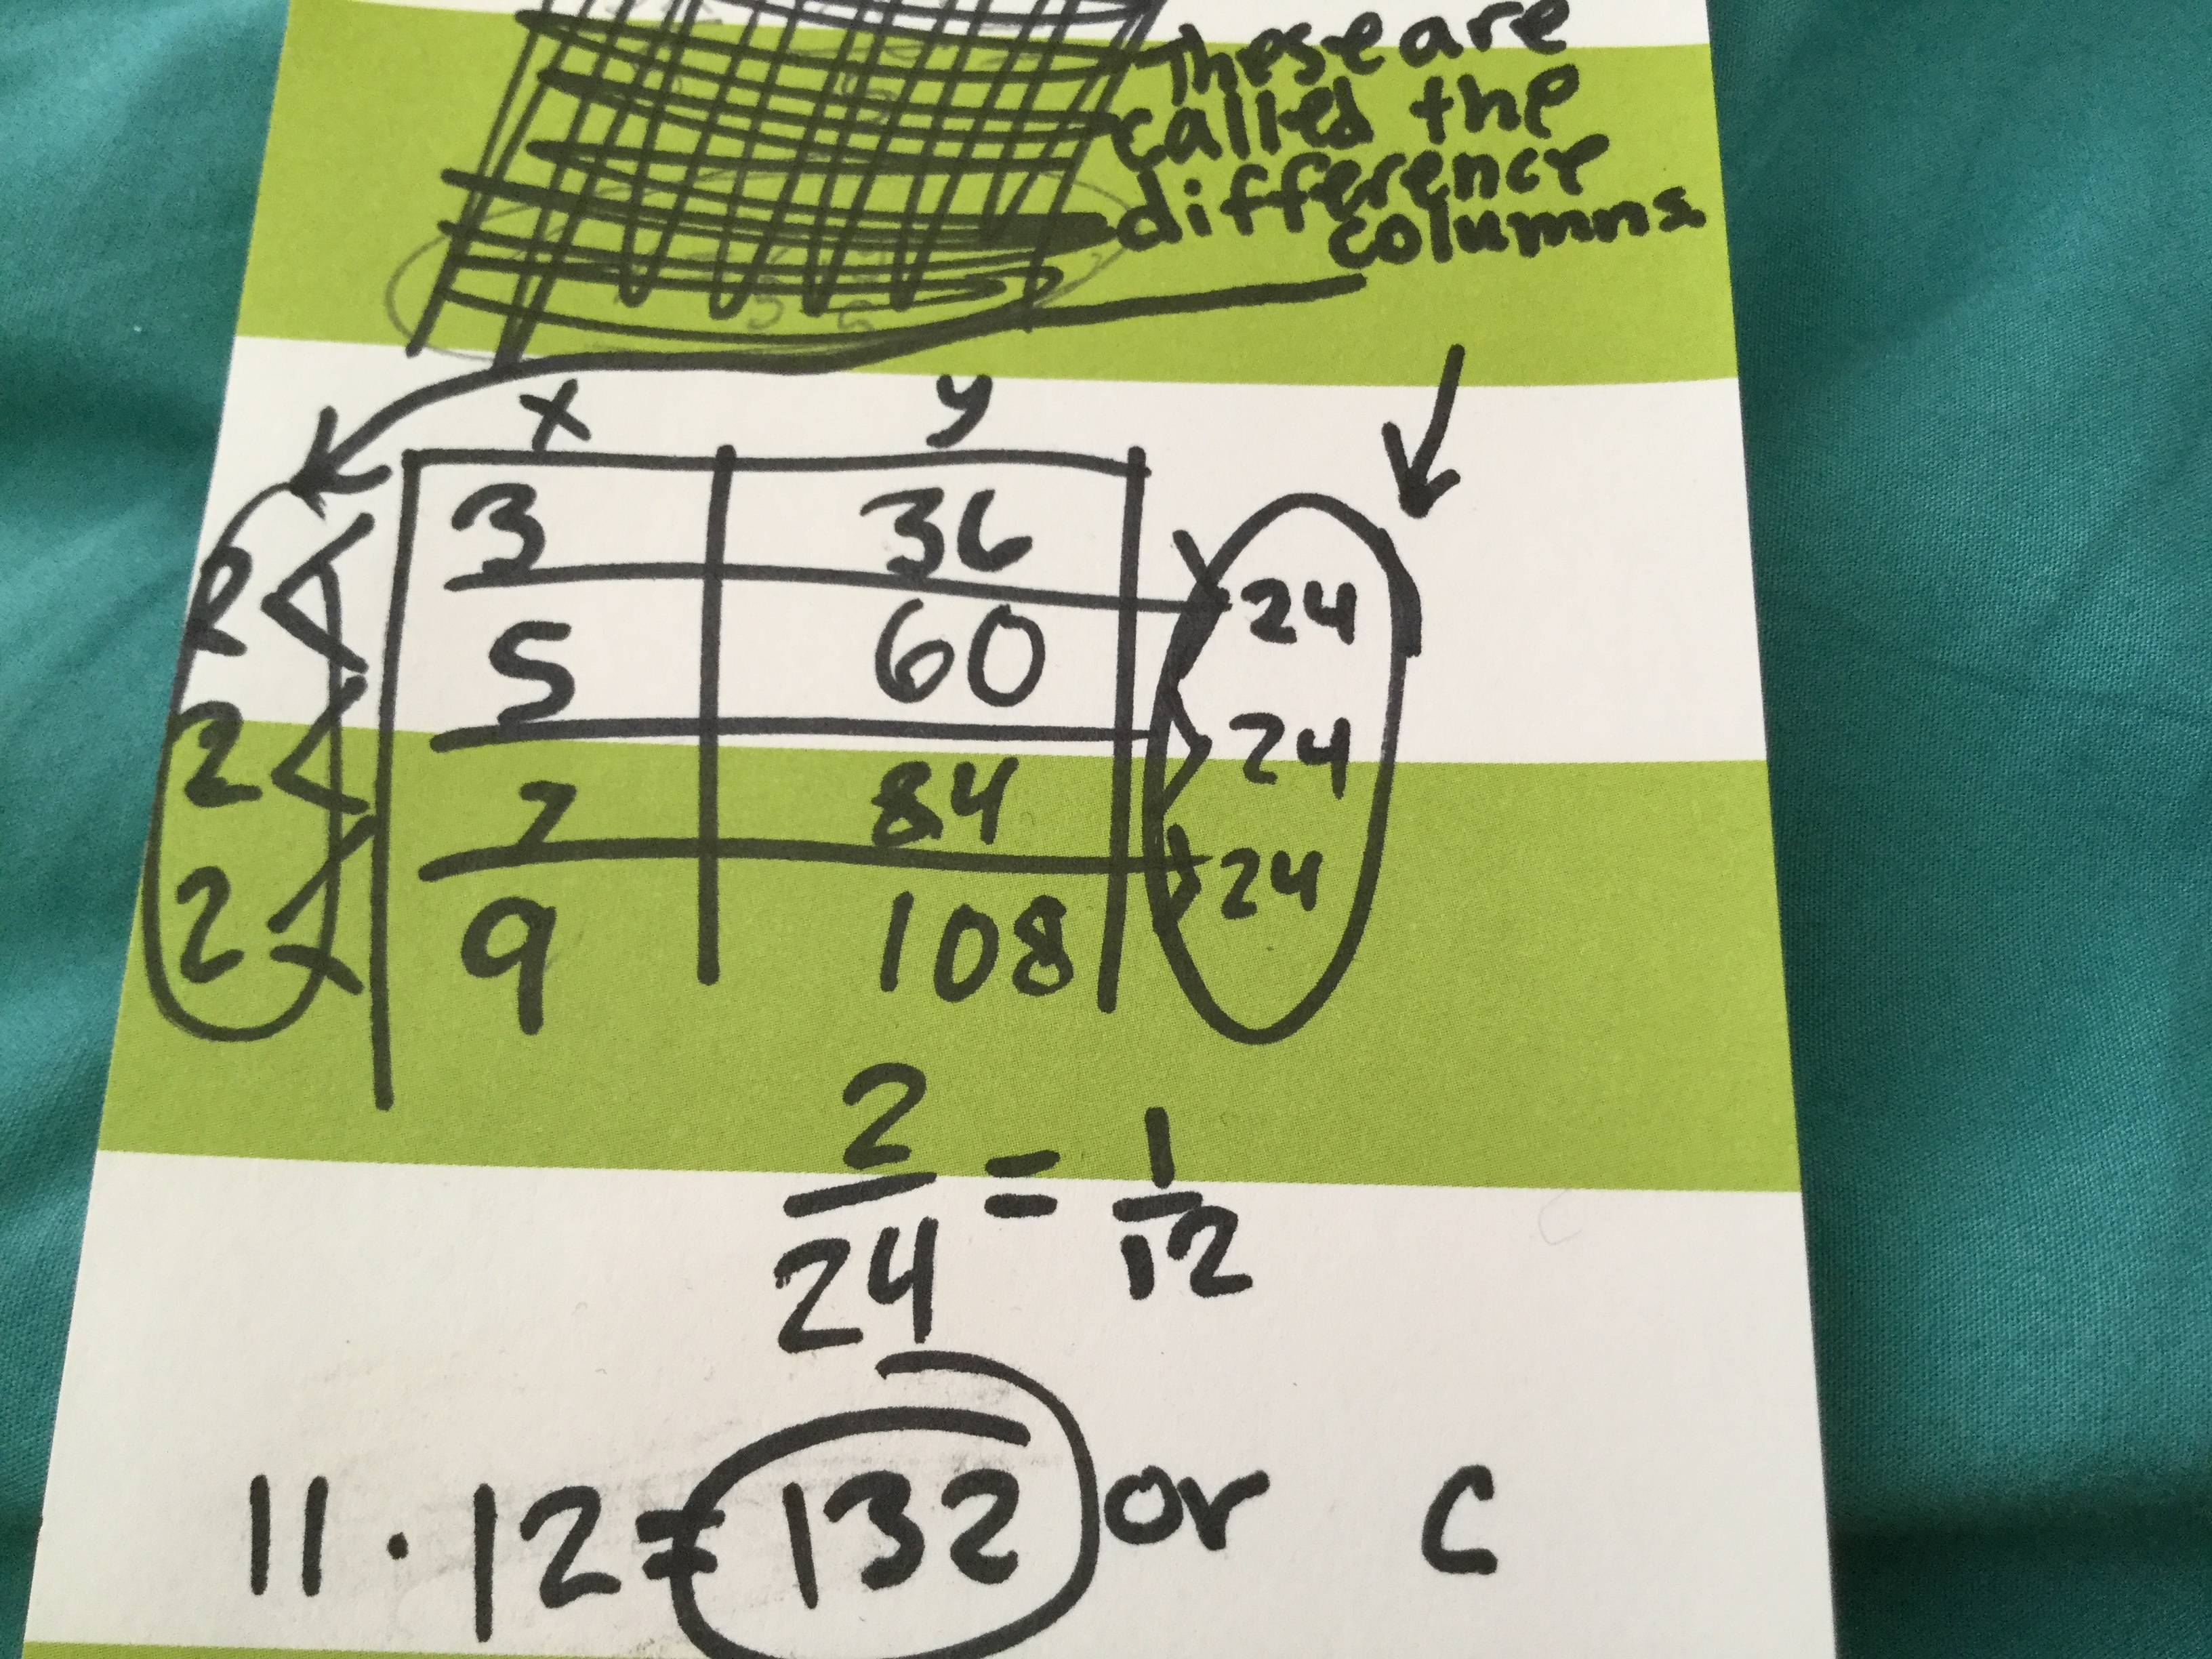 These are
called the
difference
columns.
x y
3 36
2 24
5 60
2 24
7 84
2 24
9 108
2/24 = 1/12
11 · 12 = 132 or C